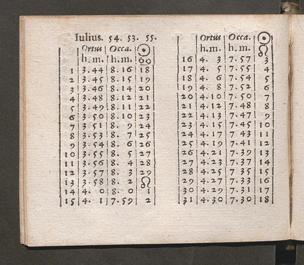 Iulius. 54. 53. 55.
Ortus Occa. ☉
h. m. h. m. ♋
1 3.44 8.16 18
2 3.45 8.15 19
3 3.46 8.14 20
4 3.48 8.12 21
5 3.49 8.11 22
6 3.50 8.10 23
7 3.51 8. 9 24
8 3.53 8. 7 25
9 3.54 8. 6 26
10 3.55 8. 5 27
11 3.56 8. 4 28
12 3.57 8. 3 29
13 3.58 8. 2 ♌
14 4. 0 8. 0 1
15 4. 1 7.59 2
Ortus Occa. ☉
h. m. h. m. ♌
16 4. 3 7.57 3
17 4. 5 7.55 4
18 4. 6 7.54 5
19 4. 8 7.52 6
20 4.10 7.50 7
21 4.12 7.48 8
22 4.13 7.47 9
23 4.15 7.45 10
24 4.17 7.43 11
25 4.19 7.41 12
26 4.21 7.39 13
27 4.23 7.37 14
28 4.25 7.35 15
29 4.27 7.33 16
30 4.29 7.31 17
31 4.30 7.30 18